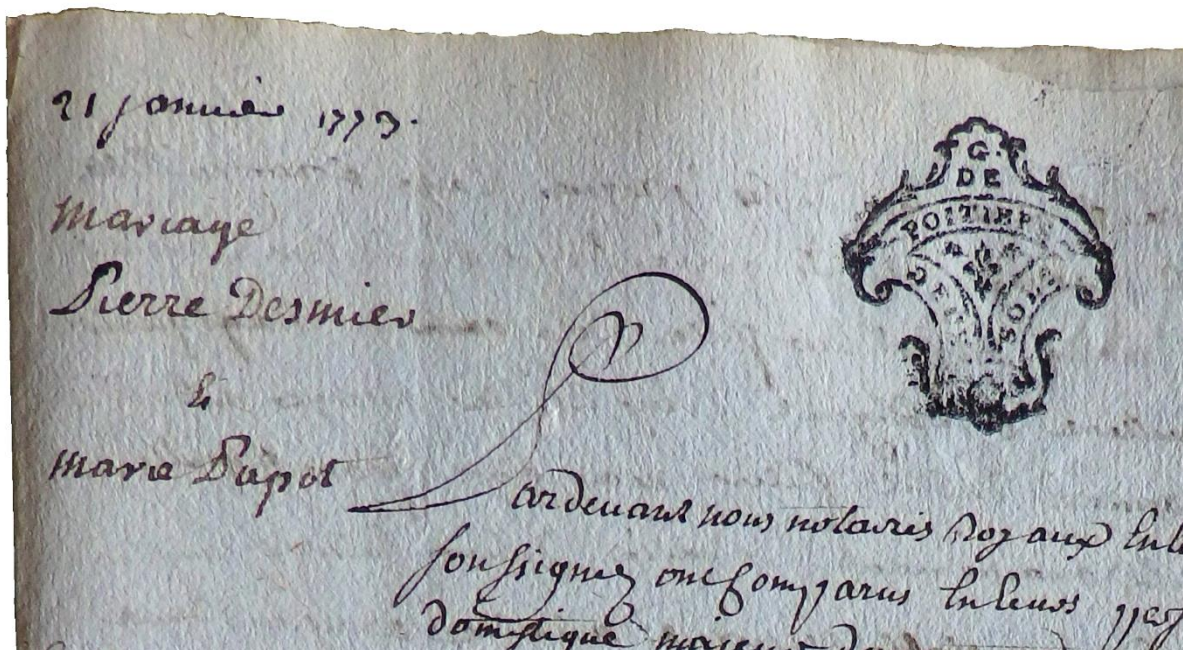 21 janvier 1773.
mariage
Pierre Desmier
et
marie Papot
G.
DE
POITIERS
DEUX SOLS
Pardevant nous notaires Royaux
soussignez ont Comparus en leurs
domestique majeur